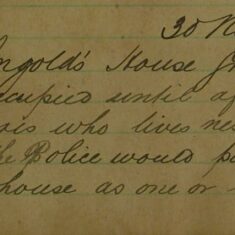 30 N
ngold's House Gr
ccupied until a
is who lives ne
the Police would p
house as one or